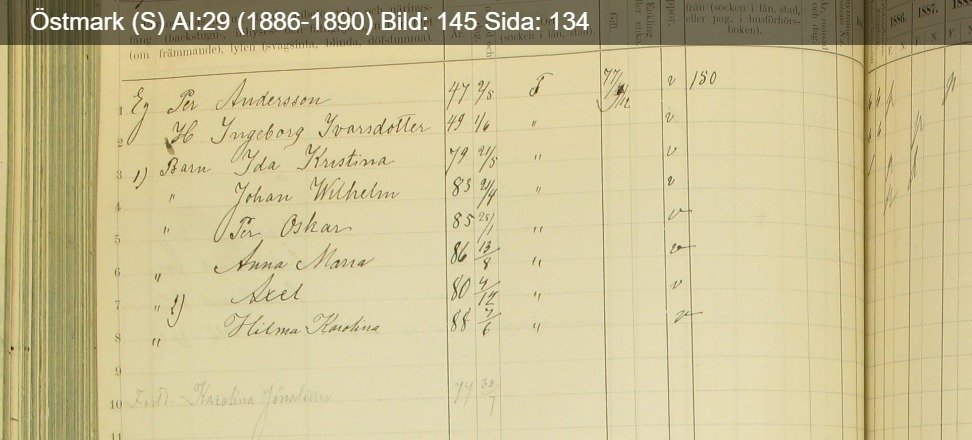 Östmark (S) AI:29 (1886-1890) Bild: 145 Sida: 134
(om främmande), lyten (svagsinta, blinda, döfstumma).
(socken i län, stad).
från (socken i län, stad, eller pag. i husförhörsboken).
1886. 1887.
F. N. F. N. F.
1 Eg Per Andersson 47 9/5 F 77 v 180
2 H Ingeborg Ivarsdotter 49 1/6 " v
3 1) Barn Ida Kristina 79 21/5 " v
4 " Johan Wilhelm 83 21/4 " v
5 " Per Oskar 85 25/1 " v
6 " Anna Maria 86 13/8 " v
7 " 2) Axel 80 4/12 " v
8 " Hilma Karolina 88 7/6 " v
9
10 Karolina 77 30/7
11